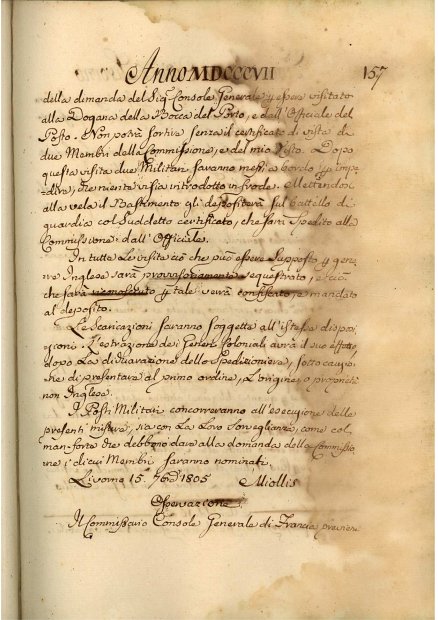 Anno MDCCCVII
157
della dimanda del Sig. Console Generale p. essere visitato
alla Dogana della Bocca del Porto, e dall'Officiale del
Posto. Non potrà sortire senza il certificato di visita di
due Membri della Commissione, e del mio Visto. Dopo
questa visita due Militari saranno messi a bordo p. impe-
dire, che niente vi sia introdotto in frode. Mettendosi
alla vela il Bastimento gli depositerà sul battello di
guardia col suddetto certificato, che sarà spedito alla
Commissione dall'Officiale.
In tutte le visite ciò che può essere supposto p. gene-
re Inglese sarà provvisoriamente sequestrato, e ciò
che sarà riconosciuto p. tale verrà confiscato, e mandato
al deposito.
Le Scaricazioni saranno soggette all'istesse dispo-
sizioni. L'estrazione dei Generi Coloniali avrà il suo effetto,
dopo la dichiarazione dello Spedizioniere, sotto cauzio-
ne di presentare al primo ordine, l'origine, o proprietà
non Inglese.
I Posti Militari concorreranno all'esecuzione delle
presenti misure, sia con la loro sorveglianza, come col
man-forte che debbono dare alla domanda della Commissio-
ne i di cui Membri saranno nominati.
Livorno 15. 1805
Miollis
Osservazione
Il Commissario Console Generale di Francia